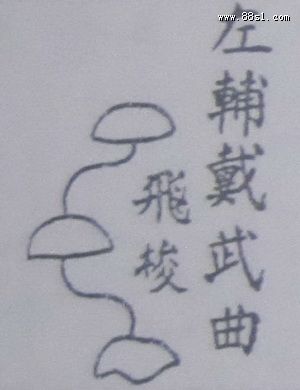 www.88s1.com
左輔戴武曲
飛梭